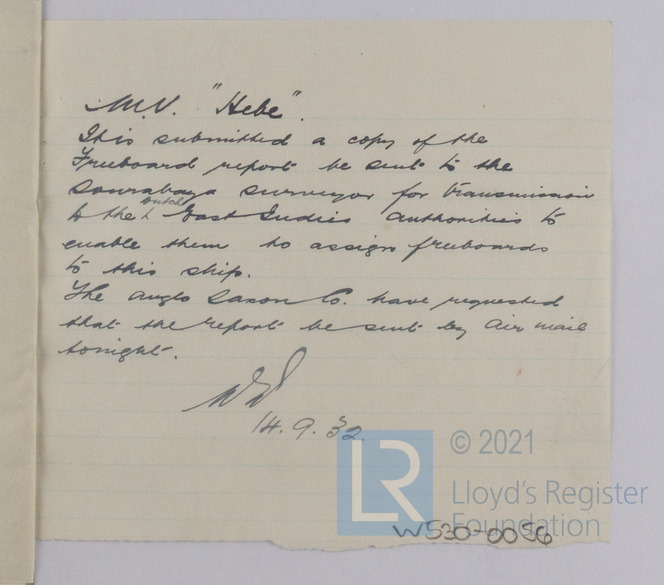 M.V. "Hebe".
It is submitted a copy of the
Freeboard report be sent to the
Sourabaya surveyor for transmission
to the Dutch East Indies authorities to
enable them to assign freeboards
to this ship.
The Anglo Saxon Co. have requested
that the report be sent by Air mail
tonight.
14.9.32.
LR
© 2021
Lloyd's Register
Foundation
W530-0056